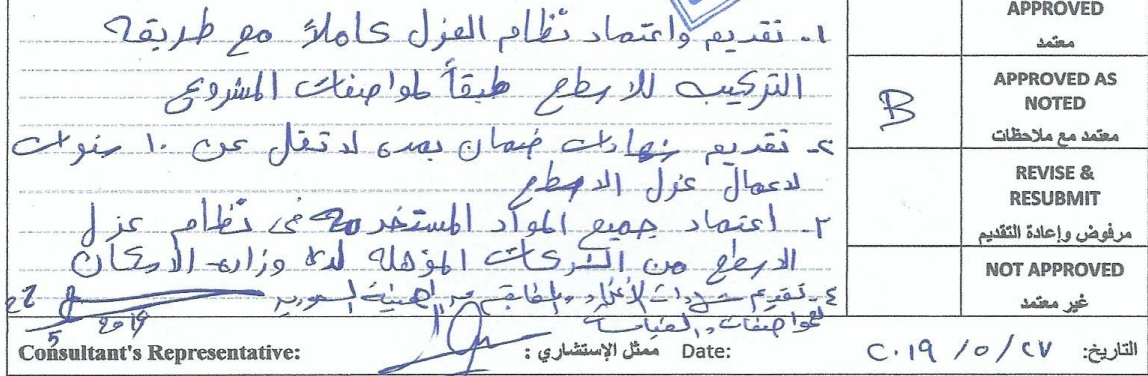 ١- تقديم واعتماد نظام العزل كاملاً مع طريقة
التركيب للاسطح طبقاً لمواصفات المشروع
٢- تقديم شهادات ضمان بمده لا تقل عن ١٠ سنوات
لاعمال عزل الاسطح
٣- اعتماد جميع المواد المستخدمه فى نظام عزل
الاسطح من الشركات المؤهله لدى وزاره الاسكان
٤- تقديم شهادات الأختبار والمطابقه من الهيئة السعوديه
للمواصفات والمقاييس
APPROVED
معتمد
B
APPROVED AS
NOTED
معتمد مع ملاحظات
REVISE &
RESUBMIT
مرفوض وإعادة التقديم
NOT APPROVED
غير معتمد
27
5 2019
Consultant's Representative: ممثل الإستشاري : Date: ٢٠١٩ /٥ /٢٧ التاريخ: